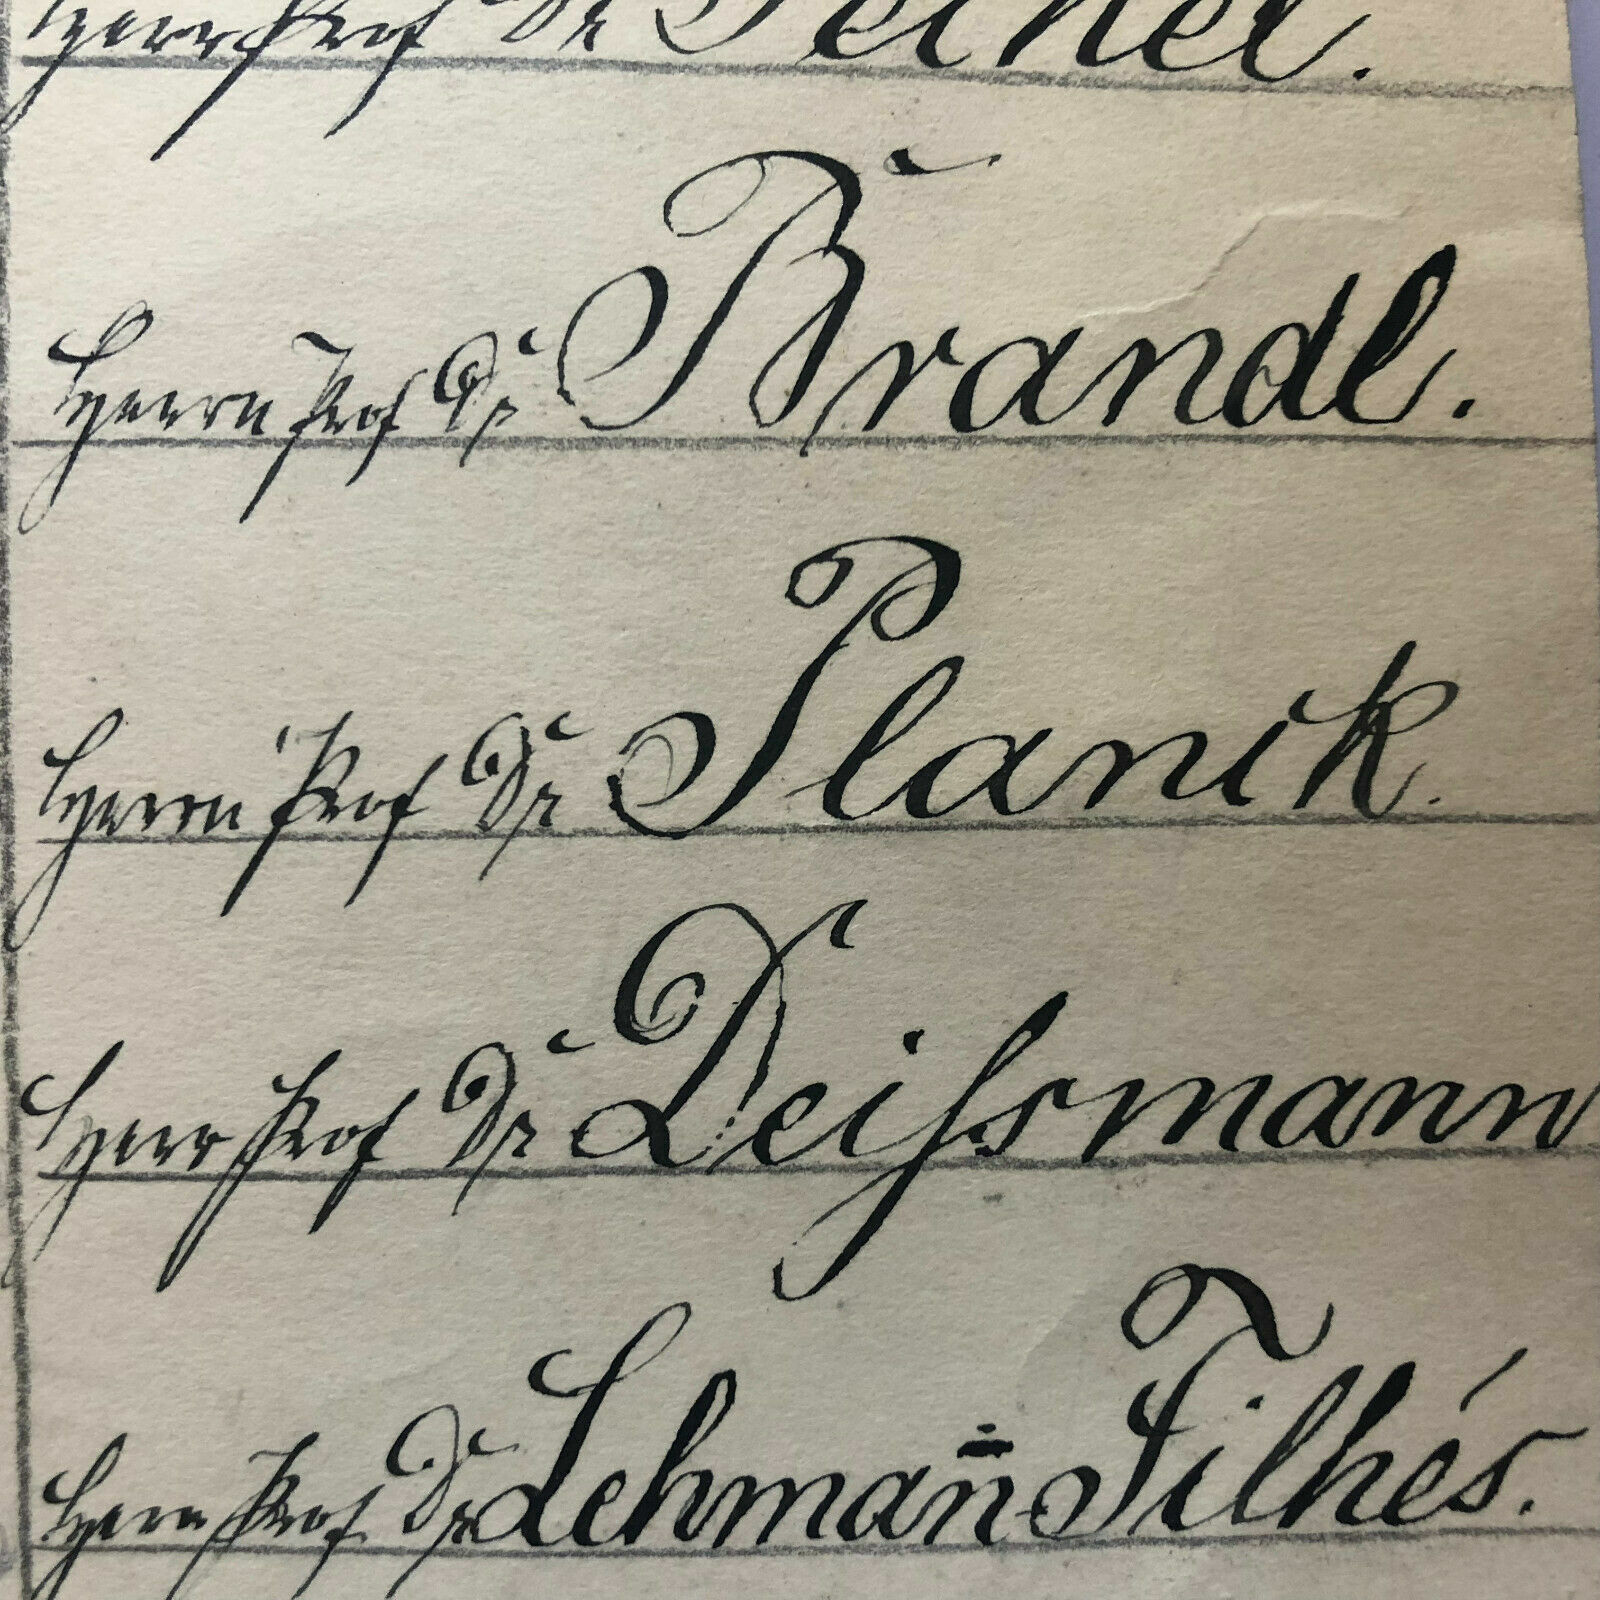 Herrn Prof Dr
Herrn Prof Dr Brandl.
Herrn Prof Dr Planik.
Herrn Prof Dr Deißmann
Herrn Prof Dr Lehman̄ Filhés.